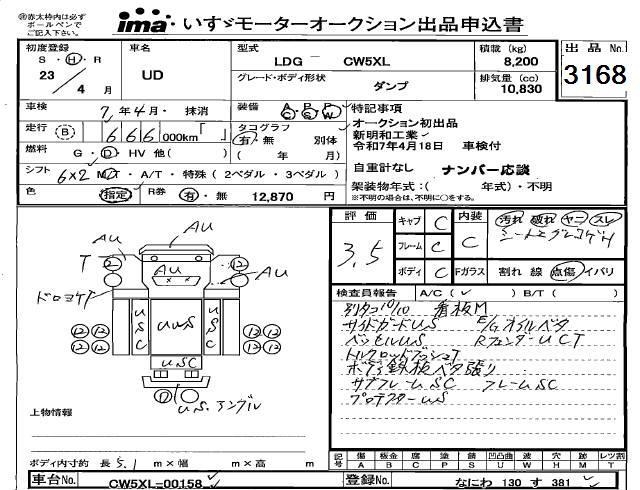 ㊟赤太枠内は必ず
ボールペンで
ご記入下さい。
ima いすゞモーターオークション出品申込書
初度登録
S・H・R
23 / 4 月
車名
UD
型式
LDG - CW5XL
グレード・ボディ形状
ダンプ
積載 (kg)
8,200
排気量 (cc)
10,830
出品 No.
3168
車検
7 年 4 月・ 抹消
装備 A C P S P W
走行 (B) 6 6 6 000km「 」
タコグラフ
有・無 別体
( 年 月)
燃料 G・D・HV 他( )
シフト 6×2 MT・A/T・特殊 ( 2ペダル・3ペダル )
色 指定 R券 有・無 12,870 円
特記事項
オークション初出品
新明和工業
令和7年4月18日 車検付
自重計なし ナンバー応談
架装物年式:( 年式)・不明
※不明の場合は、不明に○をする。
AU
AU
T
AU
AU
ドロヨケT
USC
UWS
USC
USC
US. アングル
上物情報
ボディ内寸約 長 5.1 m×幅 m×高 m
評価
3.5
キャブ C
フレーム C
ボディ C
内装 C
Fガラス
汚れ 破れ ヤニ スレ
割れ 線 点傷 イバリ
検査員報告 A/C ( ✓ ) B/T ( )
別タコ10/10 看板M
サイドガードUS E/Gオイルベタ
ベッセルUS RフェンダーUCT
トルクロッドブッシュT
ボデー鉄板ベタ張り
サブフレームSC フレームSC
プロテクターUS
記号 傷 板金 腐 塗 錆 凹凸曲 波 穴 跡 レツ割
A B C P S U W H M T
車台No. CW5XL-00158
登録No. なにわ 130 す 381